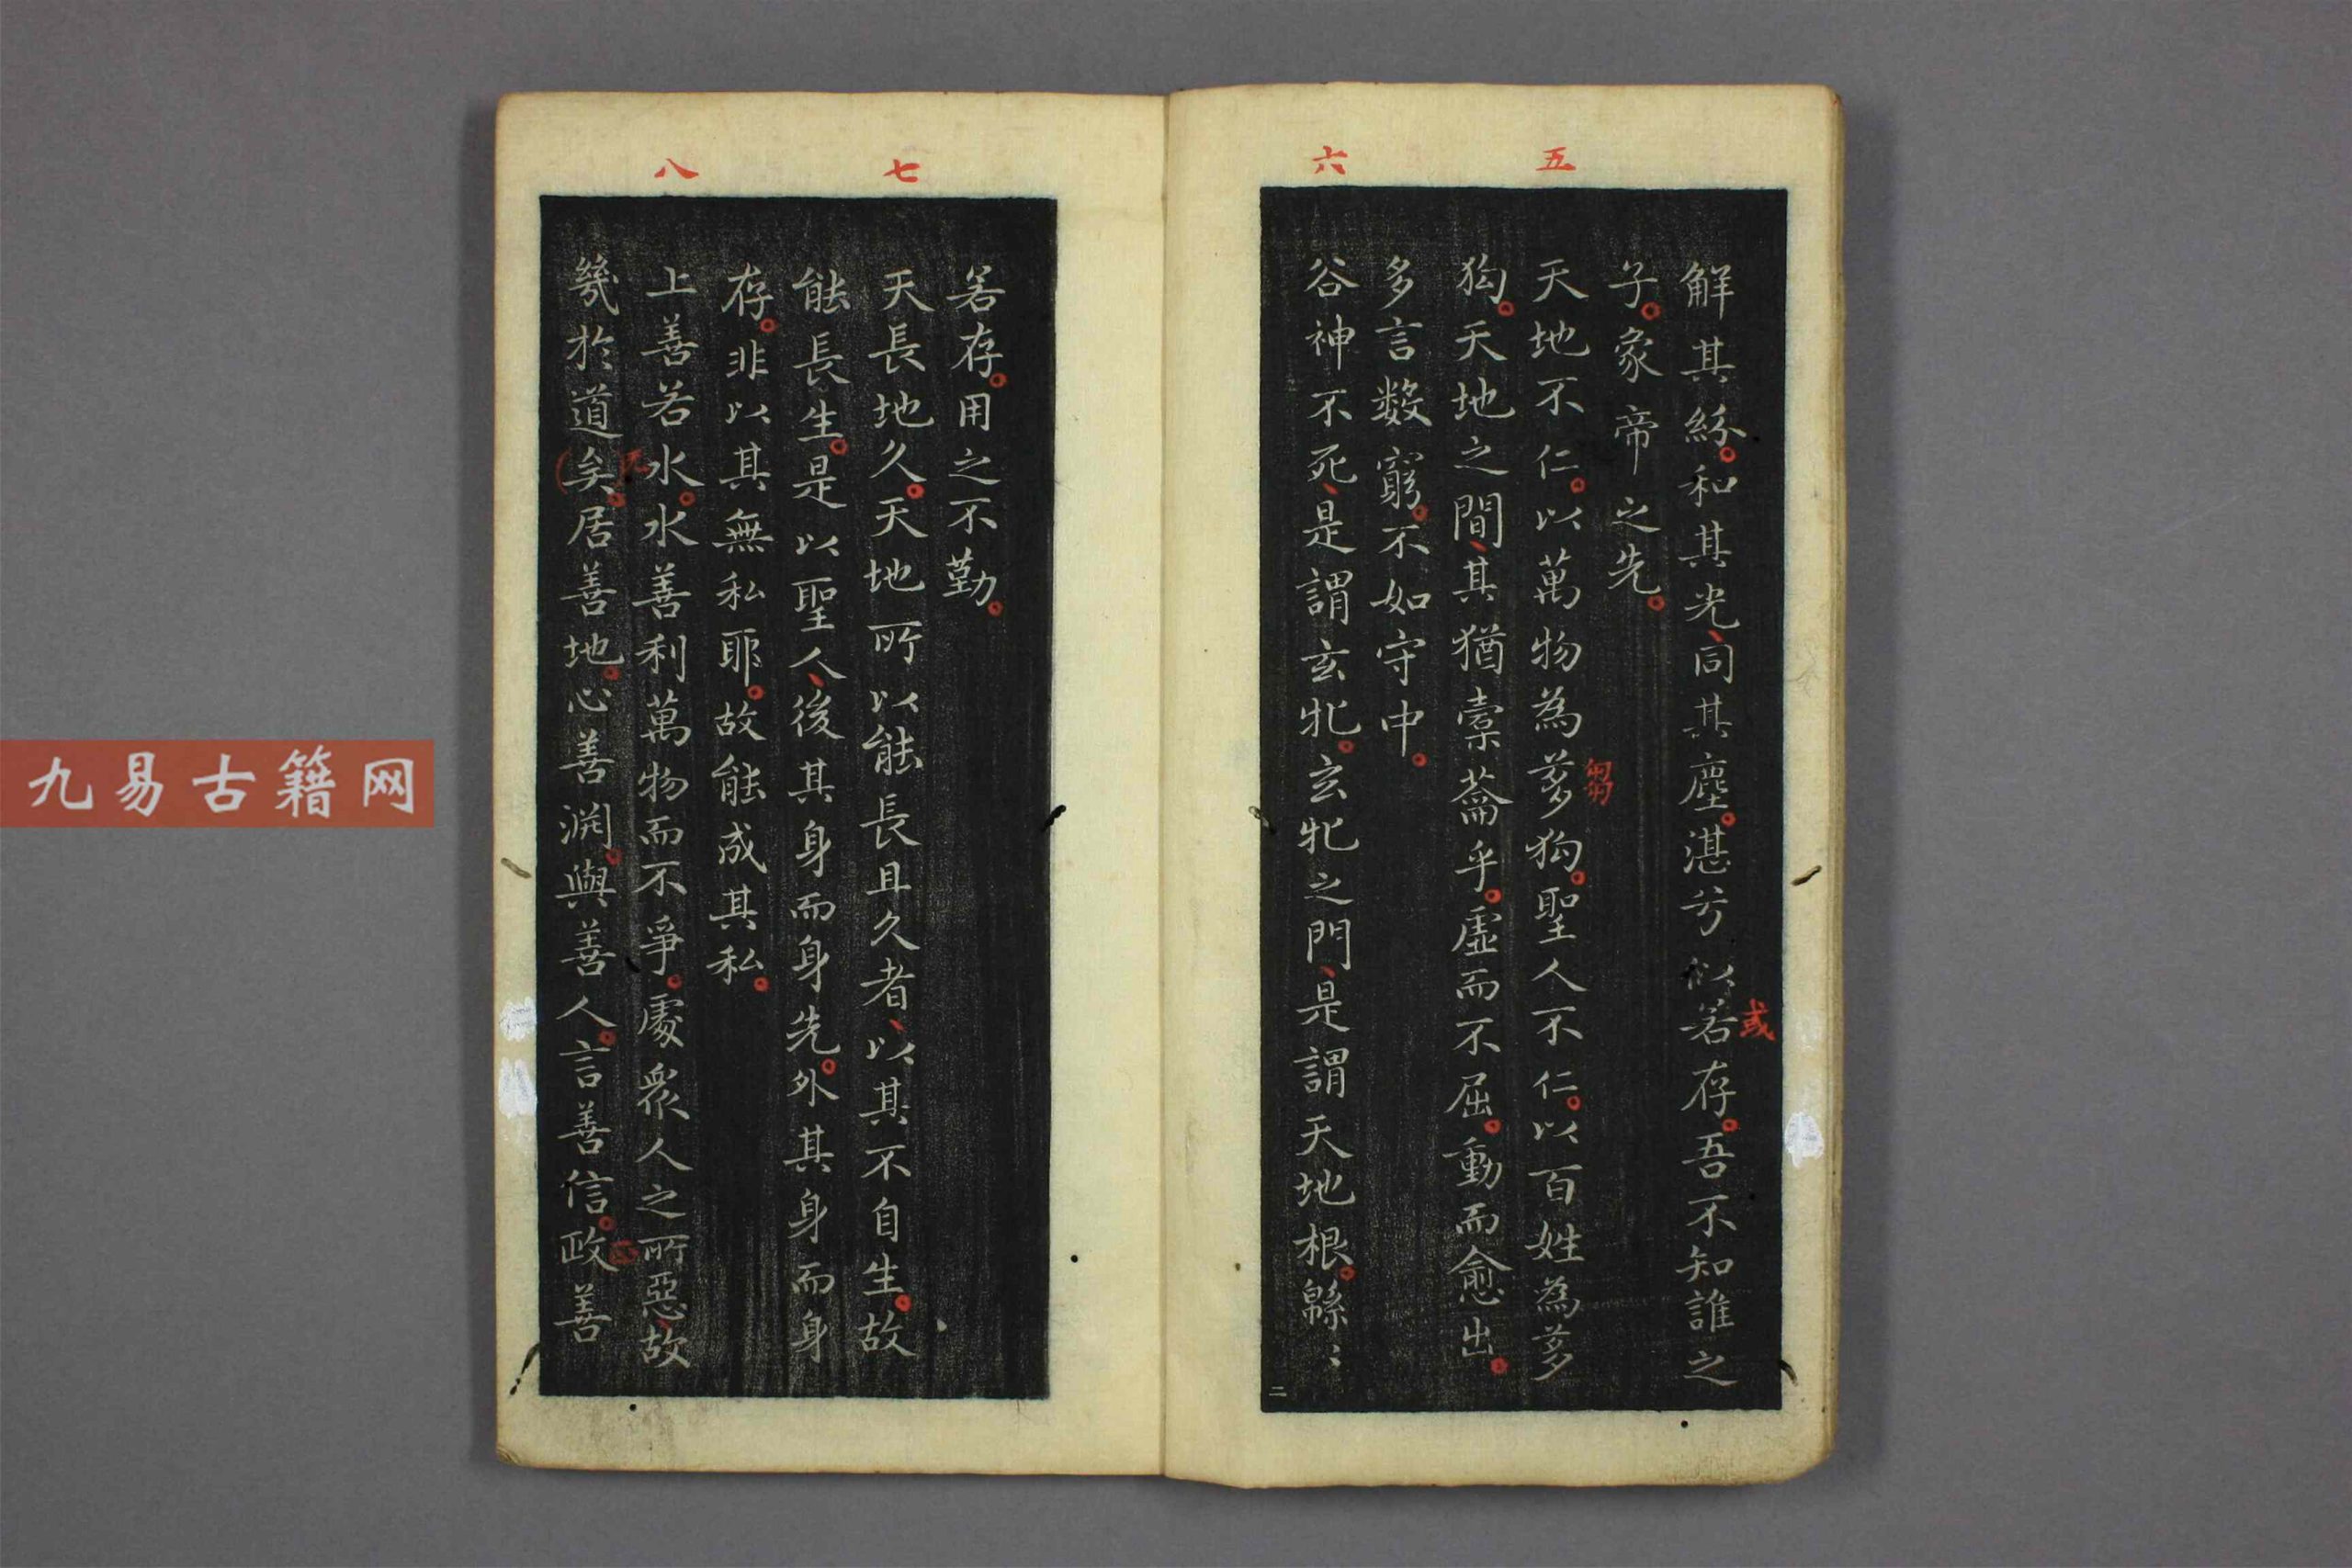 五
六
解其紛和其光同其塵湛兮似若存吾不知誰之
或
子象帝之先
天地不仁以萬物為芻狗聖人不仁以百姓為芻
芻
狗天地之間其猶橐籥乎虛而不屈動而愈出
多言數窮不如守中
谷神不死是謂玄牝玄牝之門是謂天地根緜〻
二
七
八
若存用之不勤
天長地久天地所以能長且久者以其不自生故
能長生是以聖人後其身而身先外其身而身
存非以其無私耶故能成其私
上善若水水善利萬物而不爭處衆人之所惡故
幾於道矣居善地心善淵與善人言善信政善
九易古籍网